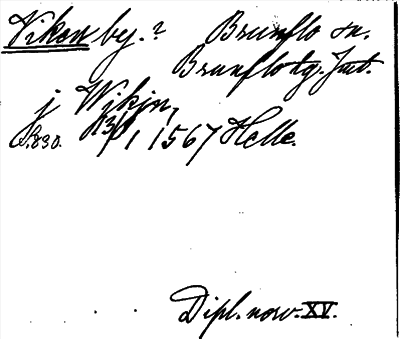 Viken by.? Brunflo sn.
Brunflo tg. Jmt.
j Wikjn,
B.830. 13/1 1567 Helle.
Dipl. norv. XV.